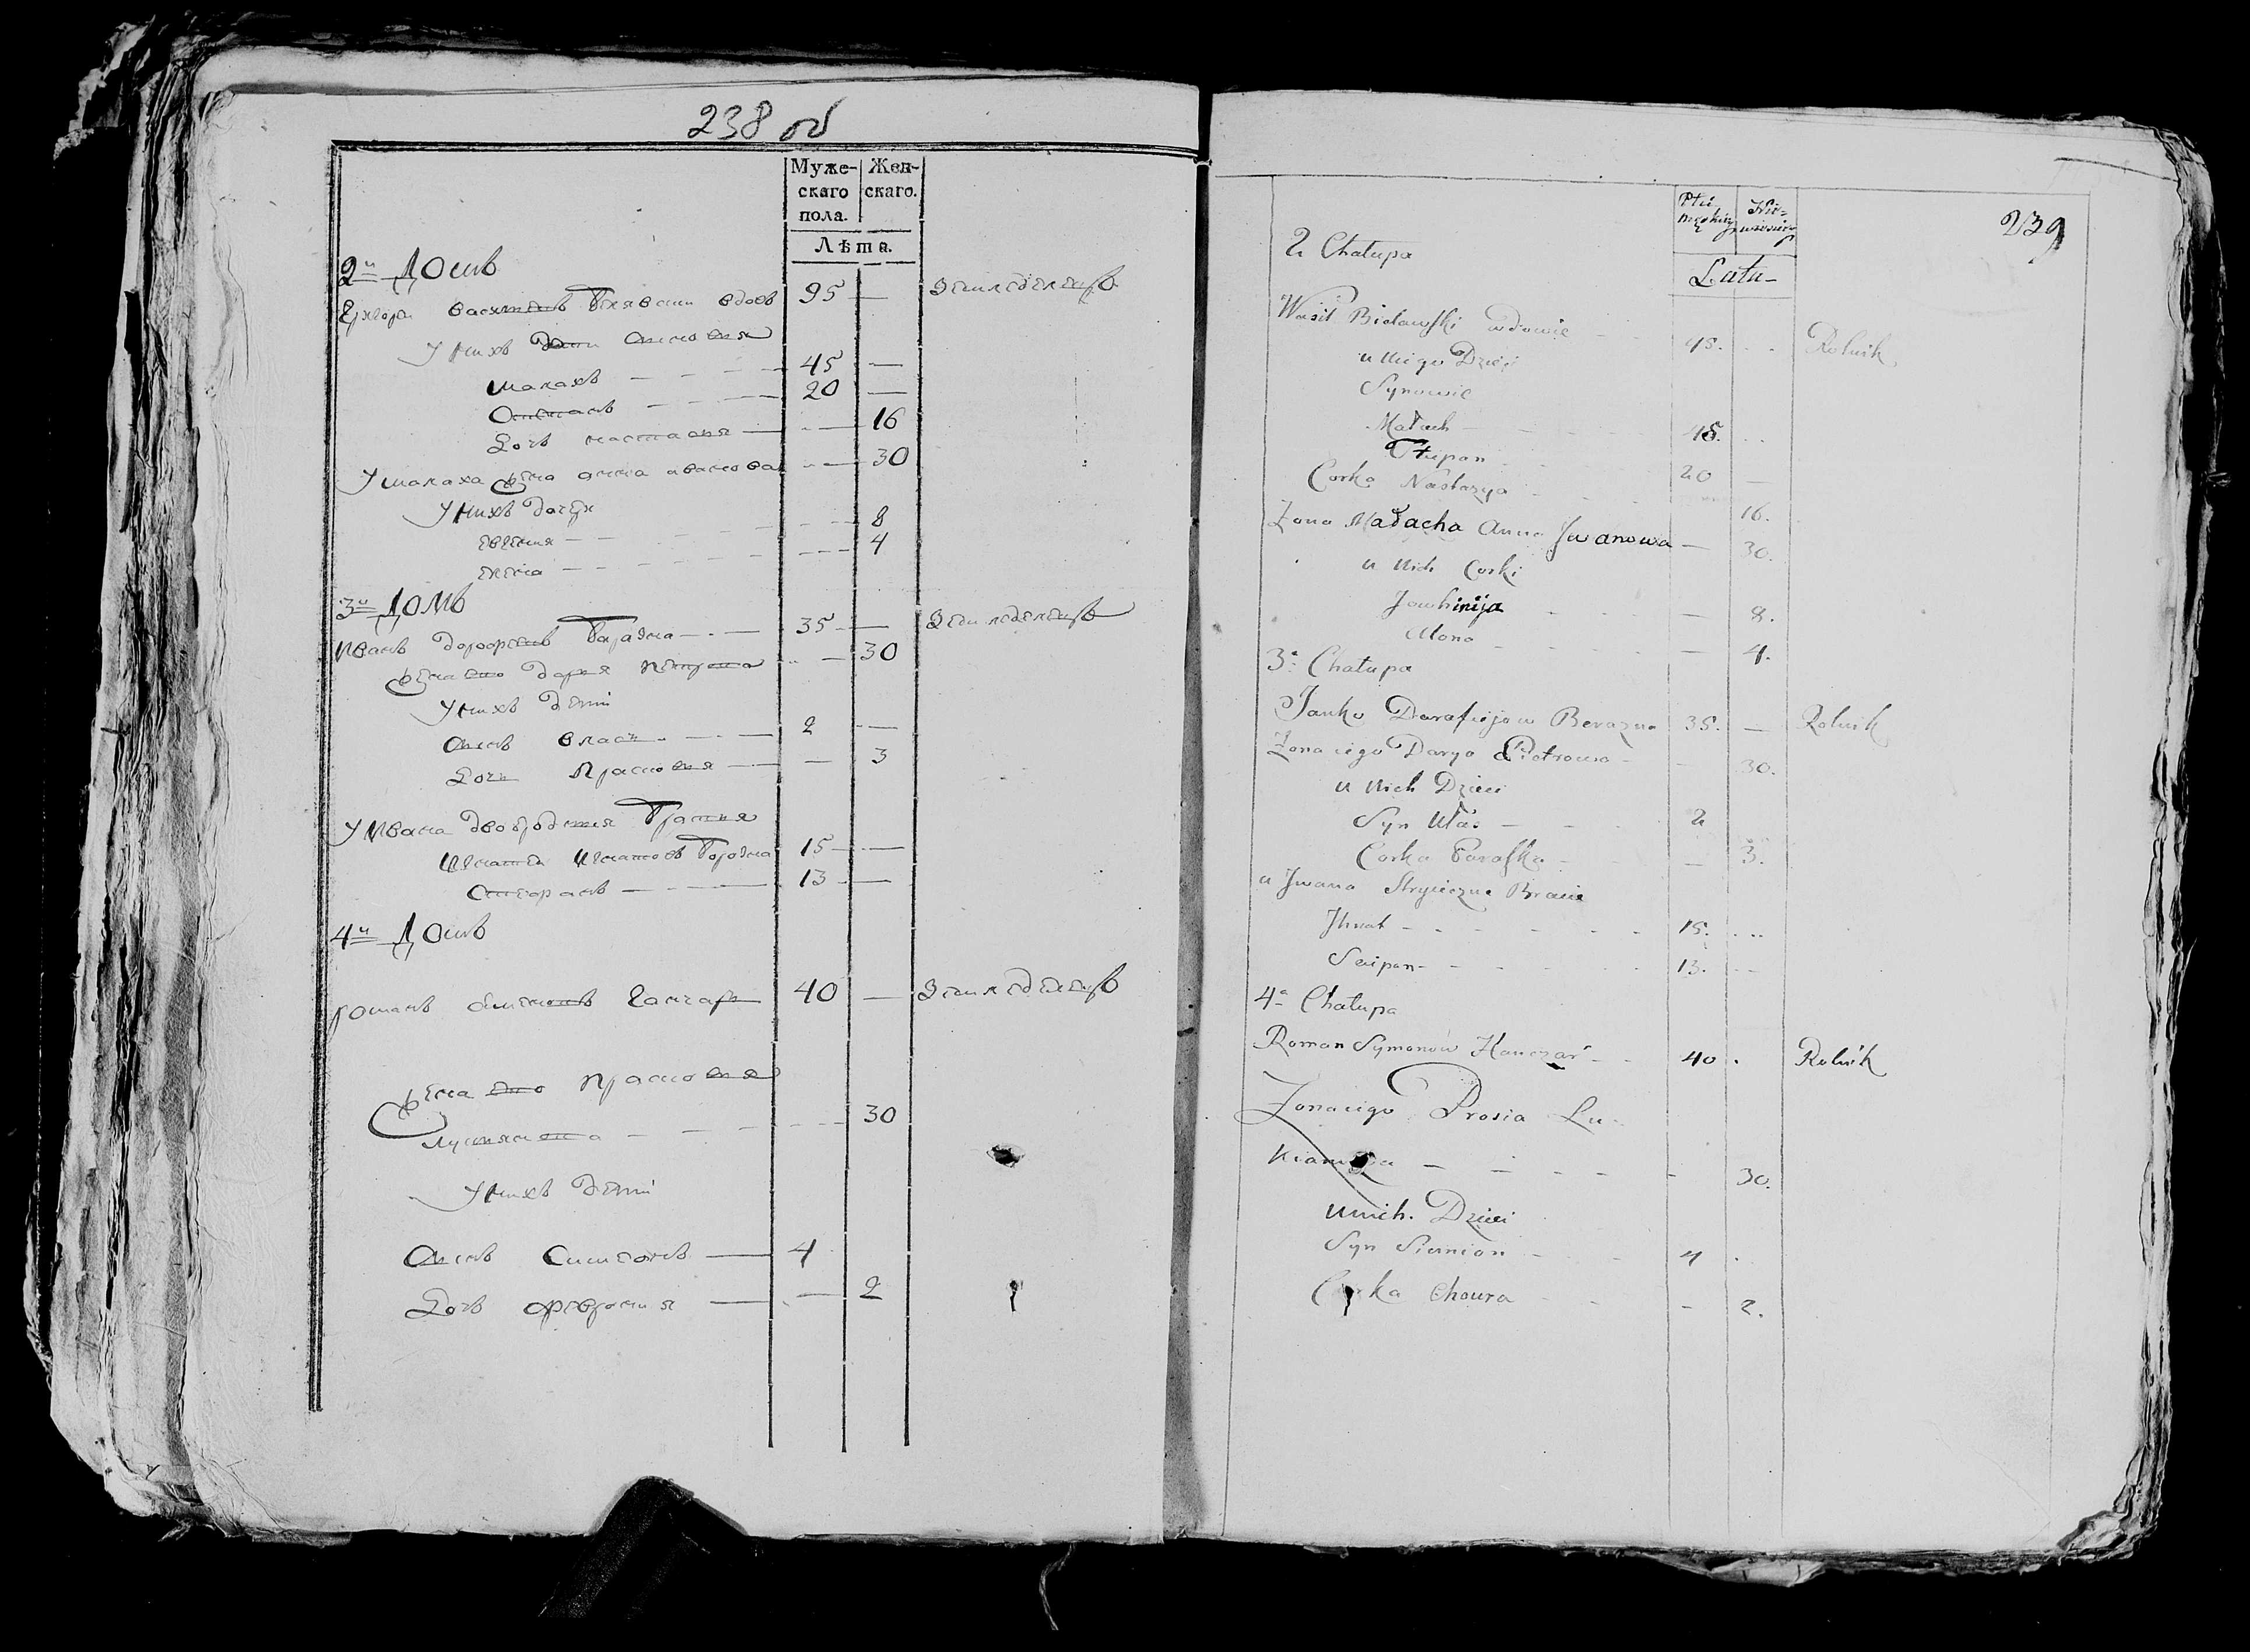 238 об
Муже-
скаго
пола.
Жен-
скаго.
Лѣта.
2й Домъ
вдовъ 95 — Земледелецъ
У нихъ
Малахъ — 45 —
20 —
Дочь настасия — 16
У малаха жена анна иванова — 30
У нихъ дочери
Евгения — 8
елена — 4
3й Домъ
Иванъ — 35 — Земледелецъ
жена его дария петрова — 30
У нихъ дети
Сынъ власъ — 2 —
Дочь Прасковия — 3
У Ивана двоюродния братия
Игнатей Игнатовъ 15 —
13 —
4й Домъ
романъ Гончаръ 40 — Земледелецъ
жена его прасковия
30
У нихъ дети
Сынъ Симеонъ — 4
Дочь феврония — 2
239
Płci
męskiej
Latu-
2 Chałupa
Wasil Bielawski wdowiec 45. Rolnik
u niego Dzieci
Synowie
Małach 45.
20
Corka Nastazya 16.
Zona Małacha Anna Jwanowa — 30.
u nich Corki
Jowhinija — 8.
Alona — 4.
3a Chałupa
Janko Darafiejow Berazna 35. — Rolnik
Zona iego Darya Piotrowa — 30.
u nich Dzieci
Syn Ułas — 2
Corka Paraska — 3.
u Jwana Stryieczne Bracia
Jhnat 15.
13.
4a Chałupa
Roman Symonow Hanczar 40. Rolnik
Zona iego Prosia Lu-
30.
u nich. Dzieci
Syn Siemion 4
Corka Choura — 2.